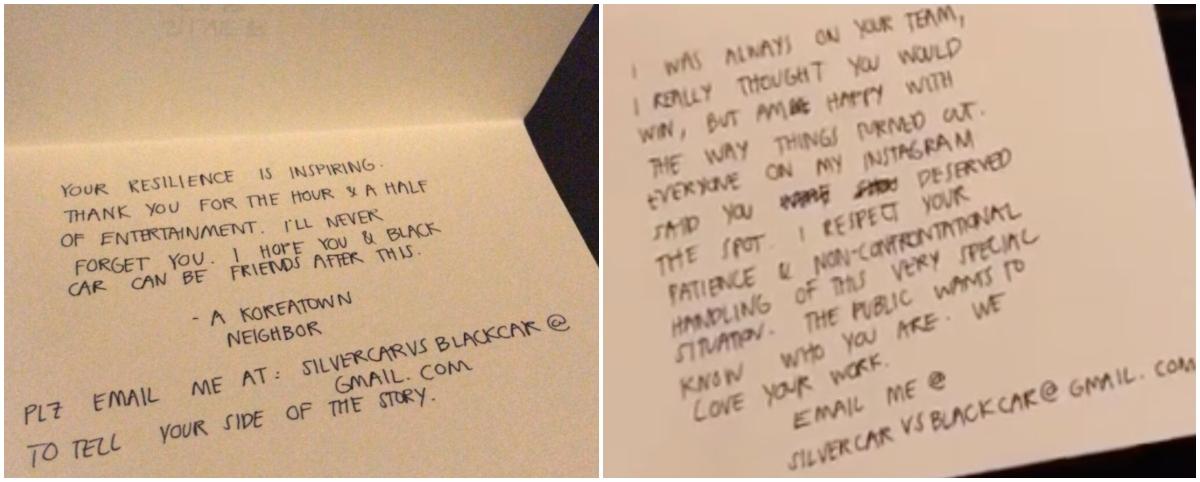 YOUR RESILIENCE IS INSPIRING.
THANK YOU FOR THE HOUR & A HALF
OF ENTERTAINMENT. I'LL NEVER
FORGET YOU. I HOPE YOU & BLACK
CAR CAN BE FRIENDS AFTER THIS.
- A KOREATOWN
NEIGHBOR
PLZ EMAIL ME AT: SILVERCARVSBLACKCAR@
GMAIL.COM
TO TELL YOUR SIDE OF THE STORY.
I WAS ALWAYS ON YOUR TEAM,
I REALLY THOUGHT YOU WOULD
WIN, BUT AM HAPPY WITH
THE WAY THINGS TURNED OUT.
EVERYONE ON MY INSTAGRAM
SAID YOU DESERVED
THE SPOT. I RESPECT YOUR
PATIENCE & NON-CONFRONTATIONAL
HANDLING OF THIS VERY SPECIAL
SITUATION. THE PUBLIC WANTS TO
KNOW WHO YOU ARE. WE
LOVE YOUR WORK.
EMAIL ME @
SILVERCARVSBLACKCAR@GMAIL.COM